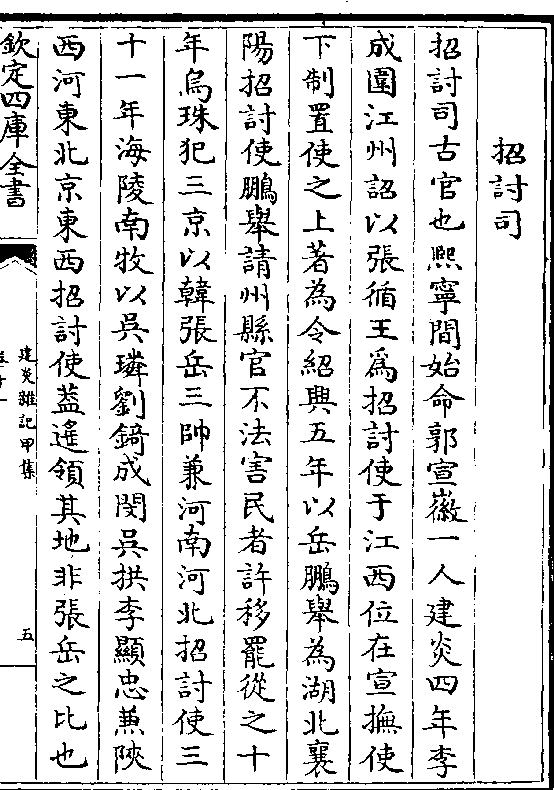 招討司
招討司古官也熙寧間始命郭宣徽一人建炎四年李
成圍江州詔以張循王爲招討使于江西位在宣撫使
下制置使之上著為令紹興五年以岳鵬舉為湖北襄
陽招討使鵬舉請州縣官不法害民者許移罷從之十
年烏珠犯三京以韓張岳三帥兼河南河北招討使三
十一年海陵南牧以吳璘劉錡成閔吳拱李顯忠兼陜
西河東北京東西招討使葢遙領其地非張岳之比也
欽定四庫全書
建炎雜記甲集
五